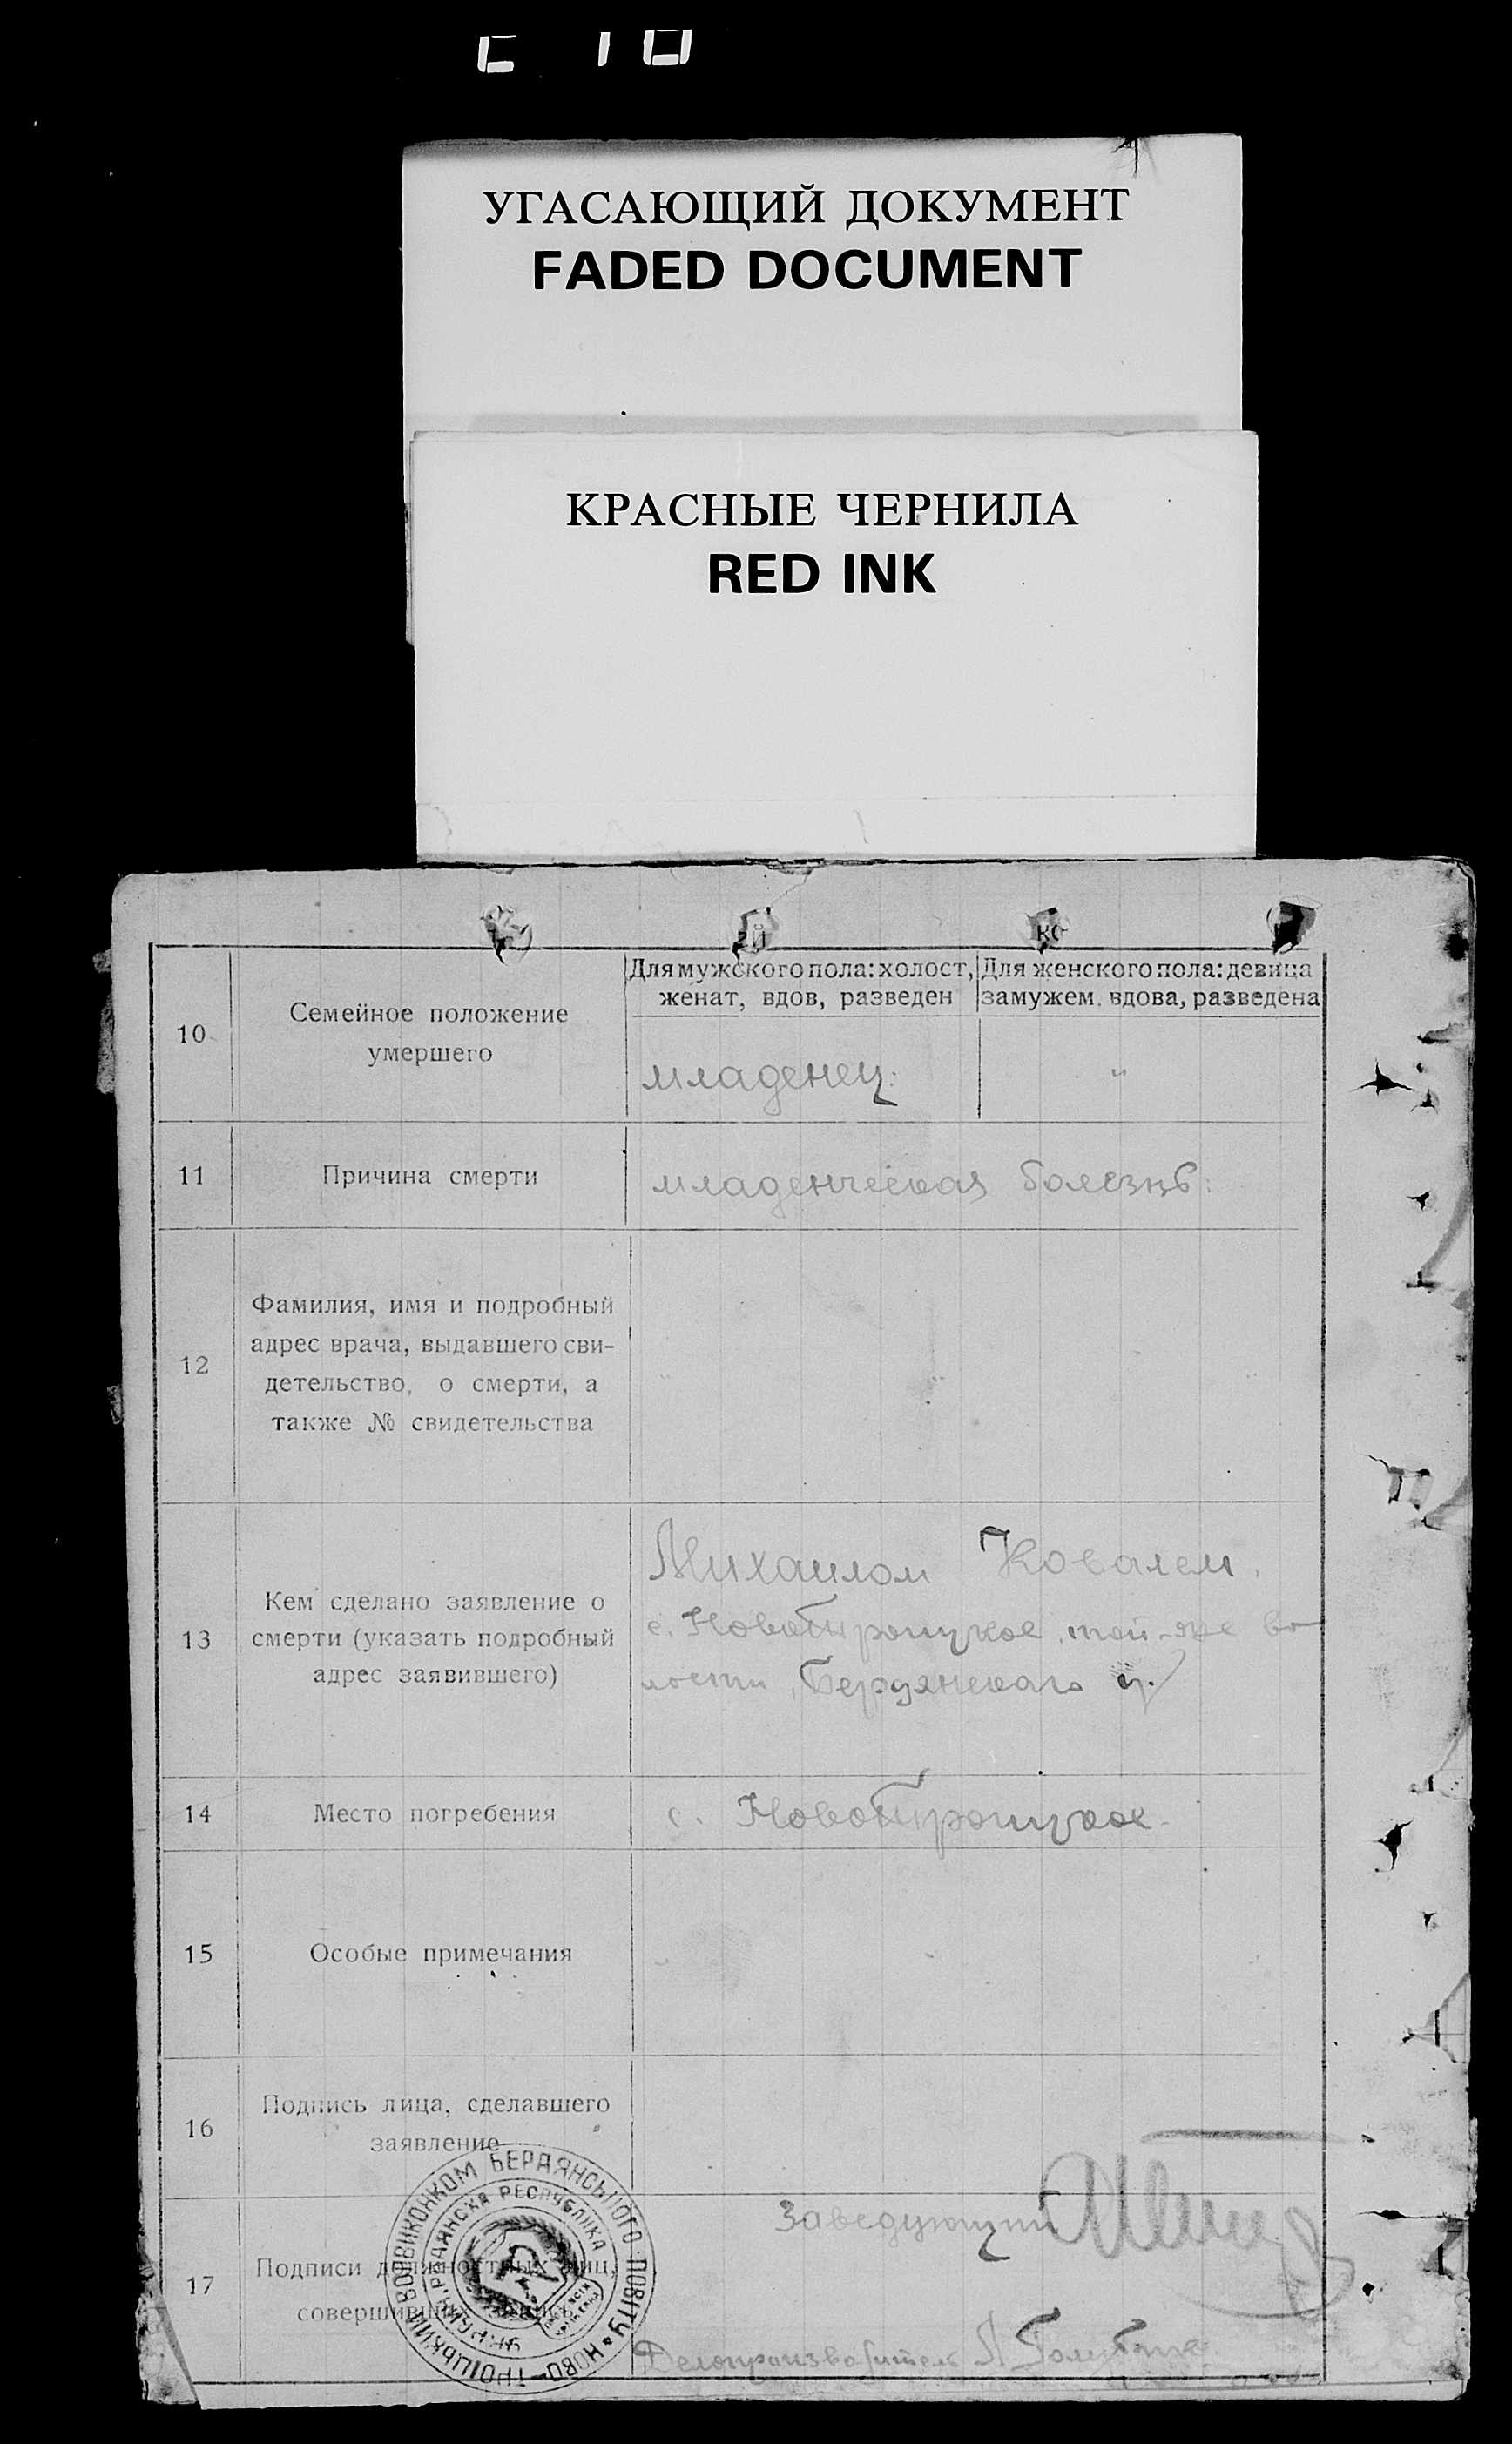 УГАСАЮЩИЙ ДОКУМЕНТ
FADED DOCUMENT
КРАСНЫЕ ЧЕРНИЛА
RED INK
10
Семейное положение
умершего
Для мужского пола: холост,
женат, вдов, разведен
Для женского пола: девица
замужем. вдова, разведена
младенец.
"
11
Причина смерти
младенческая болезнь.
12
Фамилия, имя и подробный
адрес врача, выдавшего сви-
детельство, о смерти, а
также № свидетельства
13
Кем сделано заявление о
смерти (указать подробный
адрес заявившего)
Михаилом Ковалем,
с. Новотроицкое, той-же во
лости, Бердянского у.
14
Место погребения
с. Новотроицкое.
15
Особые примечания
16
Подпись лица, сделавшего
заявление
17
Подписи должностных лиц,
совершивших
Заведующий
Делопроизводитель
НОВО-ТРОІЦЬКИЙ ВОЛВИКОНКОМ БЕРДЯНСЬКОГО ПОВІТУ
РАДЯНСЬКА РЕСПУБЛІКА